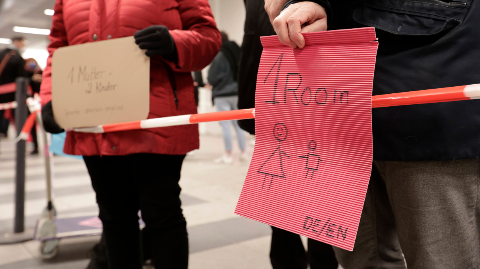 1 Mutter
2 Kinder
1 Room
DE/EN